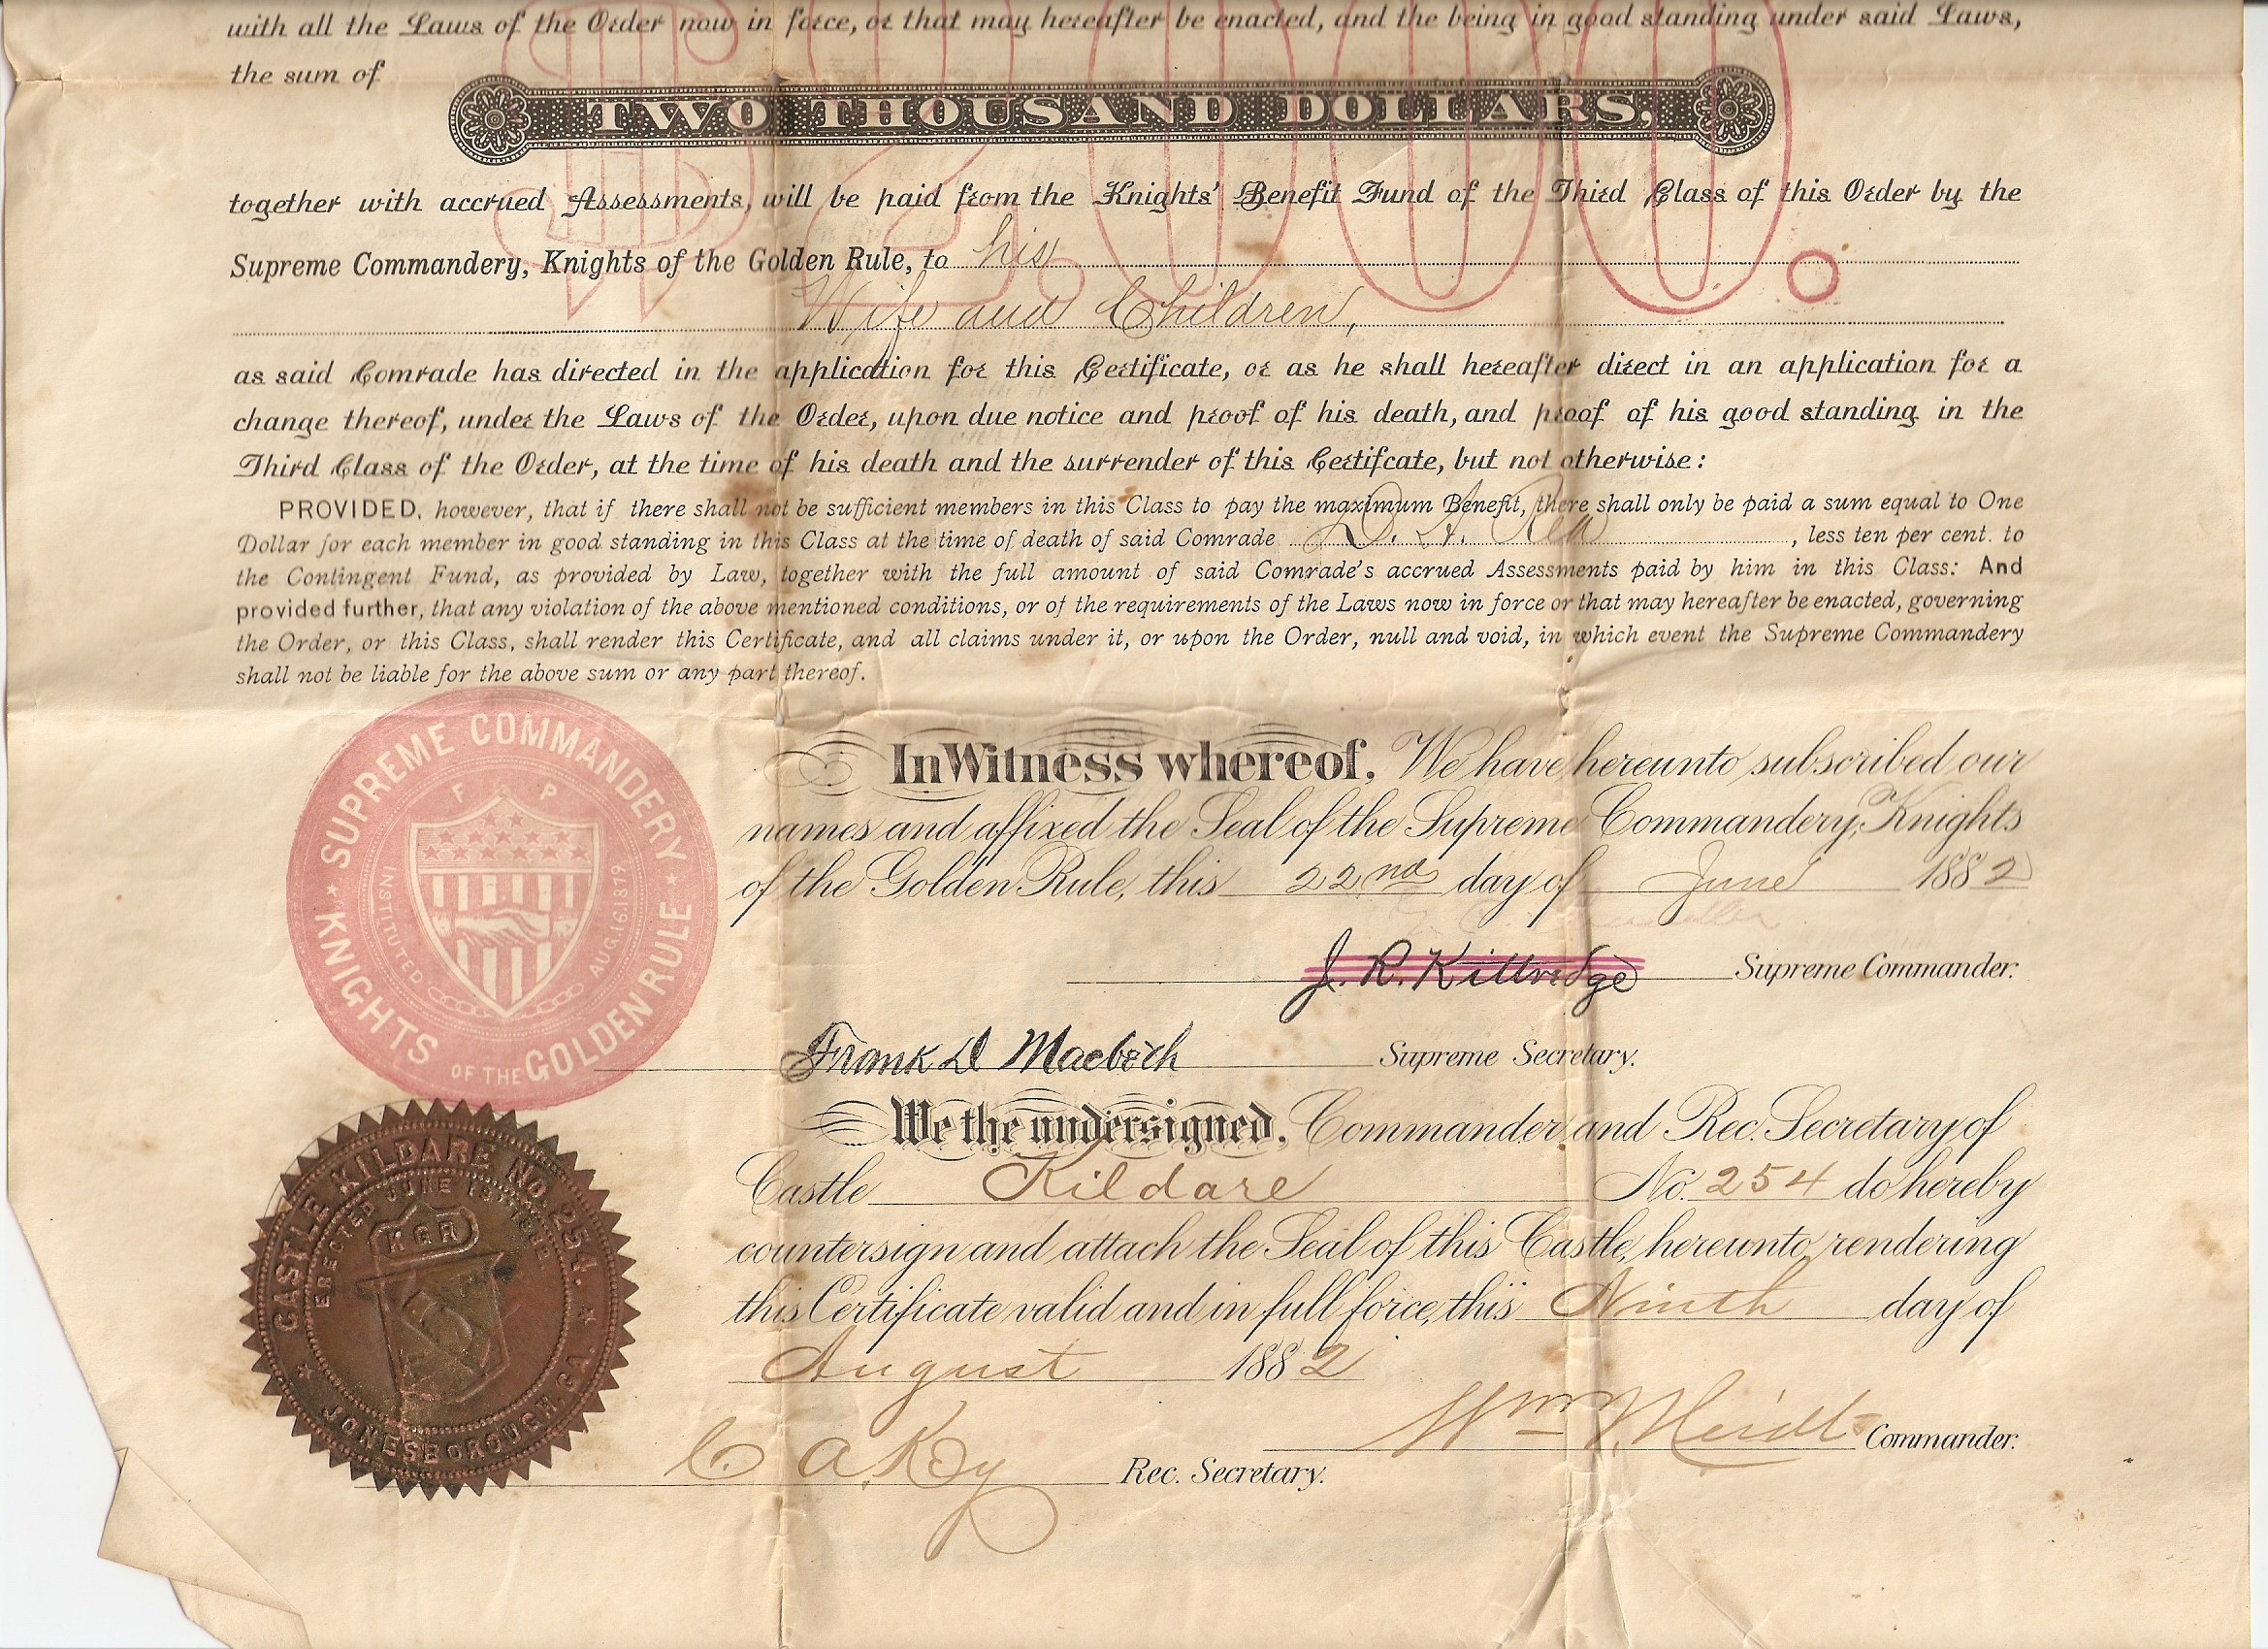 with all the Laws of the Order now in force, or that may hereafter be enacted, and the being in good standing under said Laws,
the sum of
$2,000.
TWO THOUSAND DOLLARS,
together with accrued Assessments, will be paid from the Knights' Benefit Fund of the Third Class of this Order by the
Supreme Commandery, Knights of the Golden Rule, to his
Wife and Children,
as said Comrade has directed in the application for this Certificate, or as he shall hereafter direct in an application for a
change thereof, under the Laws of the Order, upon due notice and proof of his death, and proof of his good standing in the
Third Class of the Order, at the time of his death and the surrender of this Certifcate, but not otherwise:
PROVIDED, however, that if there shall not be sufficient members in this Class to pay the maximum Benefit, there shall only be paid a sum equal to One
Dollar for each member in good standing in this Class at the time of death of said Comrade D. A. , less ten per cent. to
the Contingent Fund, as provided by Law, together with the full amount of said Comrade's accrued Assessments paid by him in this Class: And
provided further, that any violation of the above mentioned conditions, or of the requirements of the Laws now in force or that may hereafter be enacted, governing
the Order, or this Class, shall render this Certificate, and all claims under it, or upon the Order, null and void, in which event the Supreme Commandery
shall not be liable for the above sum or any part thereof.
SUPREME COMMANDERY
KNIGHTS OF THE GOLDEN RULE
F P
INSTITUTED AUG. 16. 1819
In Witness whereof, We have hereunto subscribed our
names and affixed the Seal of the Supreme Commandery, Knights
of the Golden Rule, this 22nd day of June 1882
J. R. Kittredge Supreme Commander.
Frank D Macbeth Supreme Secretary.
We the undersigned, Commander and Rec. Secretary of
Castle Kildare No. 254 do hereby
countersign and attach the Seal of this Castle, hereunto, rendering
this Certificate valid and in full force, this Ninth day of
August 1882
Wm Commander.
C. A. Key Rec. Secretary.
CASTLE KILDARE NO. 254.
ERECTED JUNE
KGR
JONESBOROUGH, GA.